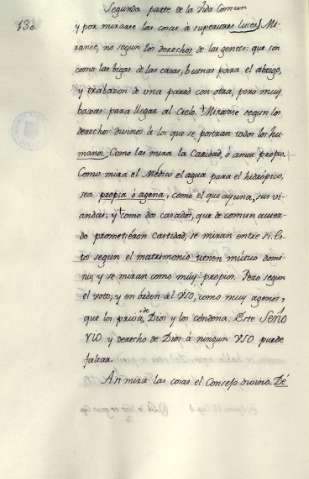 Segunda parte de la Vida Comun
130
y por mirarse las cosas à superiores luces. Mi-
ranse, no segun los derechos de las gentes: que son
como las bigas de las casas, buenas para el abrigo,
y trabazon de una pared con otra, pero muy
bajas para llegar al cielo. Miranse segun los
derechos divinos à los que se postran todos los hu-
manos. Como las mira la Caridad, ò amor propio.
Como mira el Medico el agua para el hidropico,
sea propia ò agena, como el que ayuna, sus vi-
andas, y como dos casados, que de comun acuer-
do prometieron castidad, se miran entre si. Es-
to segun el matrimonio tienen mutuo domi-
nio, y se miran como muy propios. Pero segun
el voto, y en orden al VSO, como muy agenos,
que los priva de Dios y los condena. Este Serio
VSO y derecho de Dios à ningun VSO puede
faltar.
Asi mira las cosas el Consejo divino. De